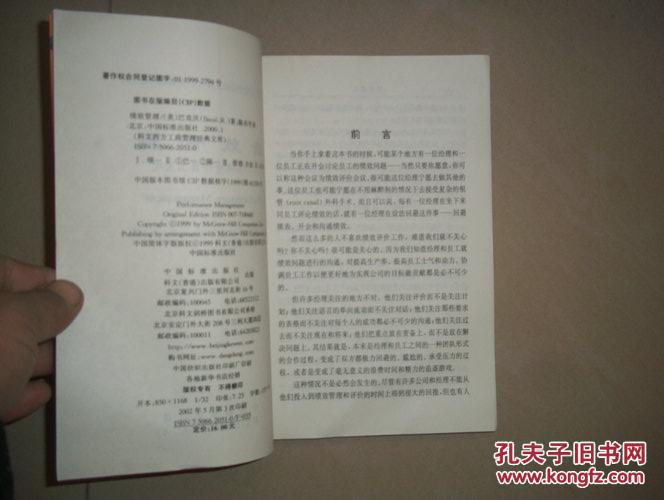 著作权合同登记图字:01-1999-2796 号
图书在版编目(CIP)数据
绩效管理/(美)巴克沃(Bacal,R.)著;
北京:中国标准出版社 2000.1
(科文西方工商管理经典文库)
ISBN 7-5066-2051-0
中国版本图书馆 CIP 数据核字(1999)第
Performance Management
Original Edition ISBN 007-718
Copyright ©1999 by McGraw-Hill Companies,Inc.
Publishing by arrangement with McGraw-Hill
中国简体字版版权©1999 科文(香港)出版有限公司
中国标准出版社 出版
科文(香港)出版有限公司
北京复兴门外三里河北街 16 号
邮政编码:100045 电话:
北京科文剑桥图书有限公司发行
北京安定门外大街 208 号三利大厦四层
邮政编码:100011 电话:
http://www.beijingkewen.com
购书网址:www.dangdang.com
中国纺织出版社印刷厂印刷
各地新华书店经销
版权专有 不得翻印
开本:850×1168 1/32 印张:7.25 字数
2002 年 5 月第 3 次印刷
ISBN 7-5066-2051-0/F·035
定价:16.00 元
前言
当你手上拿着这本书的时候,可能某个地方有一位经理和一
位员工正在开会讨论员工的绩效问题——当然只要你愿意,你可
以称这种会议为绩效评价会议。很可能这位经理宁愿去做其他的
事,这位员工也可能宁愿在不用麻醉剂的情况下去接受复杂的根
管(root canal)外科手术。而且可以说,每有一位经理在坐下来
同员工评论绩效的话,就有一位经理在设法回避这件事——回避
填表、开会和沟通绩效。
然而这么多的人不喜欢绩效评价工作,难道我们就不关心
吗?你不关心吗?很可能是关心的。因为我们知道经理和员工就
绩效问题进行的沟通,对提高生产率、提高员工士气和动力、协
调员工工作以便更好地为实现公司的目标做贡献都是必不可
少的。
但许多经理关注的地方不对。他们关注评价而不是关注计
划;他们关注话语的单向流动而不关注对话;他们关注那些要求
的表格而不关注对每个人的成功都必不可少的沟通;他们关注过
去而不关注现在和将来;他们把重点放在责备上,而不是放在解
决问题上。其结果就是,本来是经理和员工之间的一种团队形式
的合作过程,变成了双方都极力回避的、尴尬的、承受压力的过
程,或者是变成了毫无意义的浪费时间和精力的追逐游戏。
这种情况不是必然会发生的。尽管有许多公司和经理不能从
他们投入到绩效管理和评价的时间上得到很大的回报,但也有人
孔夫子旧书网
www.kongfz.com